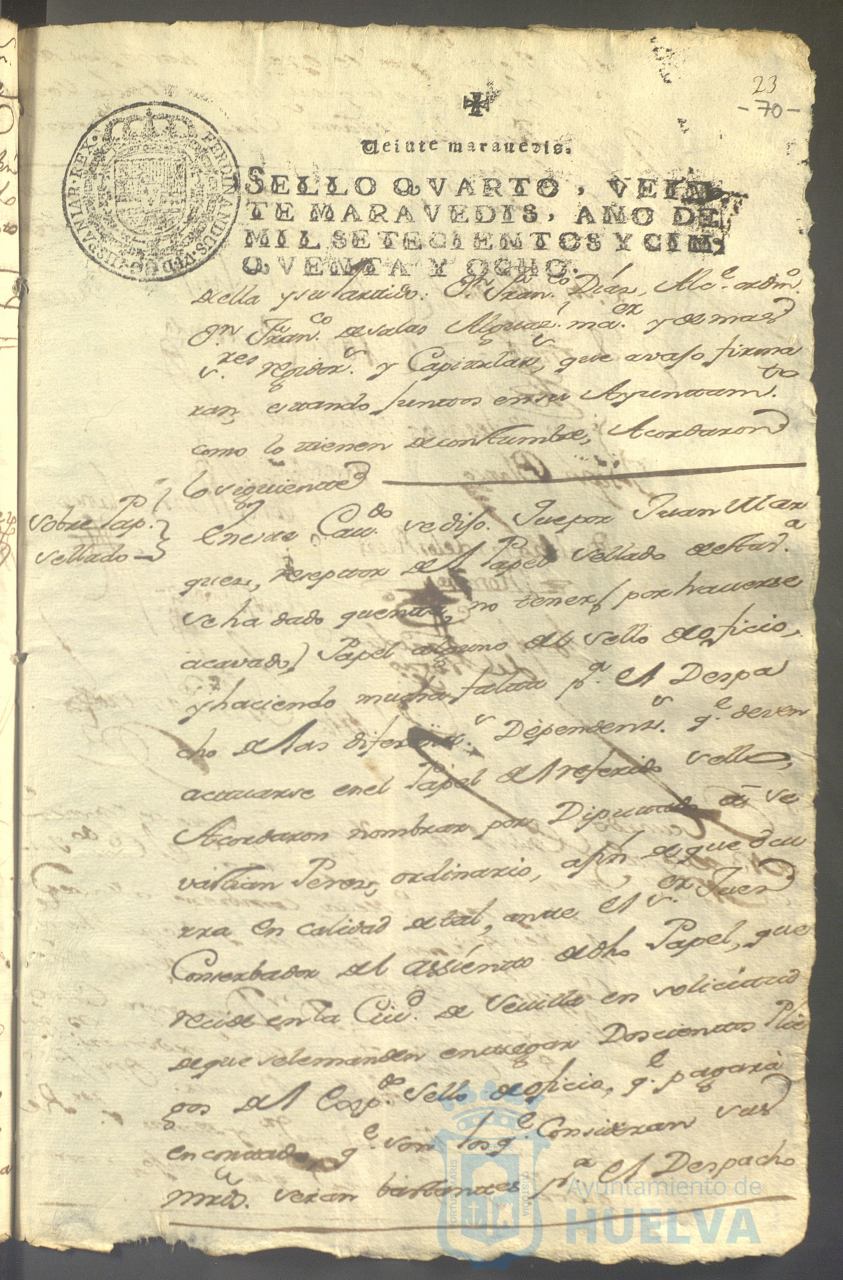 23
-70-
Veinte maravedis.
SELLO QVARTO, VEIN-
TE MARAVEDIS, AÑO DE
MIL SETECIENTOS Y CIN-
QVENTA Y OCHO.
FERDINANDUS VI D G HISPANIAR REX
della y su Partido. Dn. Franco. Díaz, Alce. ordino.
Dn. Franco. de Salas Alguazl. maor. y demas
sres. regidors. y Capitulars, que avaso firma
ran, estando Juntos en su Ayuntamto.
como lo tienen de costumbre, Acordaron
lo siguiente
Sobre Pap.
sellado
En este Cavdo. se dijo. Que por Juan Mar
ques, reseptor del Papel Sellado de esta
se ha dado quenta, no tener (por haverse
acavado) Papel alguno del Sello de oficio,
y haciendo mucha falta pa. el Despa
cho de las diferents. Dependens. qe. deven
actuarse en el Papel del referido sello,
Acordaron nombrar por Diputado a Se
vastian Peres, ordinario, a fin de que Ocu
rra en calidad de tal, ante el sor. Juez
Conserbador del assiento de dho Papel, que
recide en la Ciud. de Sevilla en solicitud
de que se le manden entregar Doscientos Plie
gos del Sello de oficio, qe. pagará
en contado, qe. son los qe. Consideran sus
mrds. seran bastantes pa. el Despacho
Ayuntamiento de
HUELVA